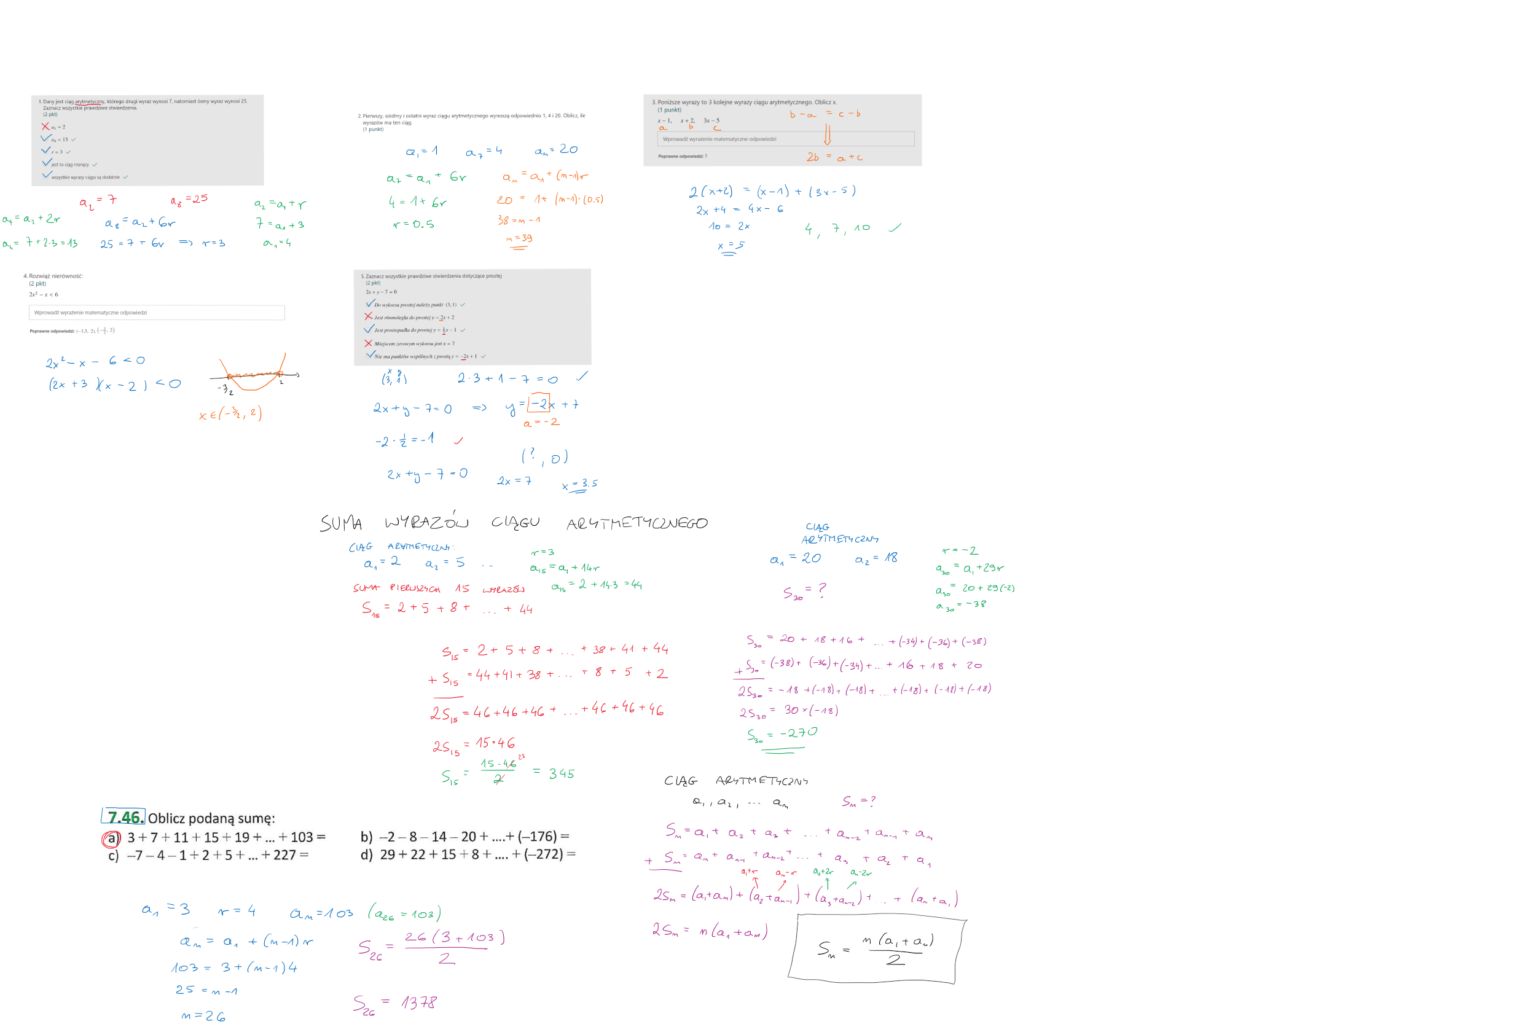 1. Dany jest ciąg arytmetyczny, którego drugi wyraz wynosi 7, natomiast ósmy wyraz wynosi 25.
Zaznacz wszystkie prawdziwe stwierdzenia.
(2 pkt)
a₁ = 2
a₄ = 13
r = 3
jest to ciąg rosnący
wszystkie wyrazy ciągu są dodatnie
a₂ = 7 a₈ = 25
a₂ = a₁ + r
a₈ = a₂ + 6r
7 = a₁ + 3
25 = 7 + 6r => r = 3
a₁ = 4
2. Pierwszy, siódmy i ostatni wyraz ciągu arytmetycznego wynoszą odpowiednio 1, 4 i 20. Oblicz, ile
wyrazów ma ten ciąg.
(1 punkt)
a₁ = 1 a₇ = 4 aₙ = 20
a₇ = a₁ + 6r
4 = 1 + 6r
r = 0.5
aₙ = a₁ + (n-1)r
20 = 1 + (n-1)·(0.5)
38 = n - 1
n = 39
3. Poniższe wyrazy to 3 kolejne wyrazy ciągu arytmetycznego. Oblicz x.
(1 punkt)
x − 1, x + 2, 3x − 5
a b c
b - a = c - b
Wprowadź wyrażenie matematyczne odpowiedzi
2b = a + c
2(x+2) = (x-1) + (3x-5)
2x + 4 = 4x - 6
10 = 2x
x = 5
4, 7, 10 ✓
4. Rozwiąż nierówność
(2 pkt)
2x² − x < 6
Wprowadź wyrażenie matematyczne odpowiedzi
2x² - x - 6 < 0
(2x + 3)(x - 2) < 0
-3/2 2
x ∈ (-3/2, 2)
5. Zaznacz wszystkie prawdziwe stwierdzenia dotyczące prostej
(2 pkt)
2x + y − 7 = 0
Do wykresu prostej należy punkt (3, 1)
Jest równoległa do prostej y = 2x + 2
Jest prostopadła do prostej y = ½x − 1
Miejscem zerowym wykresu jest x = 7
Nie ma punktów wspólnych z prostą y = −2x + 1
2·3 + 1 - 7 = 0 ✓
2x + y - 7 = 0 => y = -2x + 7
a = -2
-2 · ½ = -1 ✓
(?, 0)
2x + y - 7 = 0 2x = 7 x = 3.5
SUMA WYRAZÓW CIĄGU ARYTMETYCZNEGO
CIĄG ARYTMETYCZNY
a₁ = 2 a₂ = 5 ..
r = 3
a₁₅ = a₁ + 14r
a₁₅ = 2 + 14·3 = 44
SUMA PIERWSZYCH 15 WYRAZÓW
S₁₅ = 2 + 5 + 8 + ... + 44
S₁₅ = 2 + 5 + 8 + ... + 38 + 41 + 44
+ S₁₅ = 44 + 41 + 38 + ... + 8 + 5 + 2
2S₁₅ = 46 + 46 + 46 + ... + 46 + 46 + 46
2S₁₅ = 15·46
S₁₅ = 15·46/2 = 345
23
CIĄG
ARYTMETYCZNY
a₁ = 20 a₂ = 18
S₃₀ = ?
r = -2
a₃₀ = a₁ + 29r
a₃₀ = 20 + 29(-2)
a₃₀ = -38
S₃₀ = 20 + 18 + 16 + ... + (-34) + (-36) + (-38)
+ S₃₀ = (-38) + (-36) + (-34) + .. + 16 + 18 + 20
2S₃₀ = -18 + (-18) + (-18) + ... + (-18) + (-18) + (-18)
2S₃₀ = 30·(-18)
S₃₀ = -270
CIĄG ARYTMETYCZNY
a₁, a₂, ... aₙ Sₙ = ?
Sₙ = a₁ + a₂ + a₃ + ... + aₙ₋₂ + aₙ₋₁ + aₙ
+ Sₙ = aₙ + aₙ₋₁ + aₙ₋₂ + ... + a₃ + a₂ + a₁
a₁+r aₙ-r a₁+2r aₙ-2r
2Sₙ = (a₁+aₙ) + (a₂+aₙ₋₁) + (a₃+aₙ₋₂) + .. + (aₙ+a₁)
2Sₙ = n(a₁ + aₙ)
Sₙ = n(a₁ + aₙ)/2
7.46. Oblicz podaną sumę:
a) 3 + 7 + 11 + 15 + 19 + ... + 103 =
b) –2 – 8 – 14 – 20 + .... + (–176) =
c) –7 – 4 – 1 + 2 + 5 + ... + 227 =
d) 29 + 22 + 15 + 8 + .... + (–272) =
a₁ = 3 r = 4 aₙ = 103 (a₂₆ = 103)
aₙ = a₁ + (n-1)r
103 = 3 + (n-1)4
25 = n - 1
n = 26
S₂₆ = 26(3 + 103)/2
S₂₆ = 1378